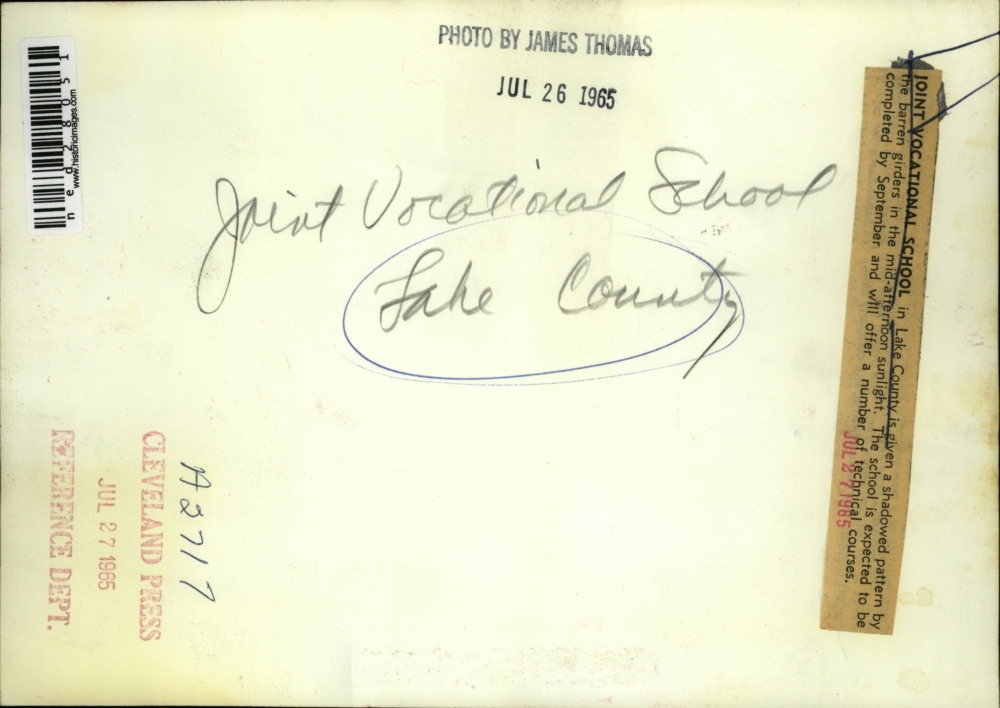 PHOTO BY JAMES THOMAS
JUL 26 1965
Joint Vocational School
Lake County
JOINT VOCATIONAL SCHOOL in Lake County is given a shadowed pattern by
the barren girders in the mid-afternoon sunlight. The school is expected to be
completed by September and will offer a number of technical courses.
JUL 27 1965
ned28051
www.historicimages.com
A2717
CLEVELAND PRESS
JUL 27 1965
REFERENCE DEPT.